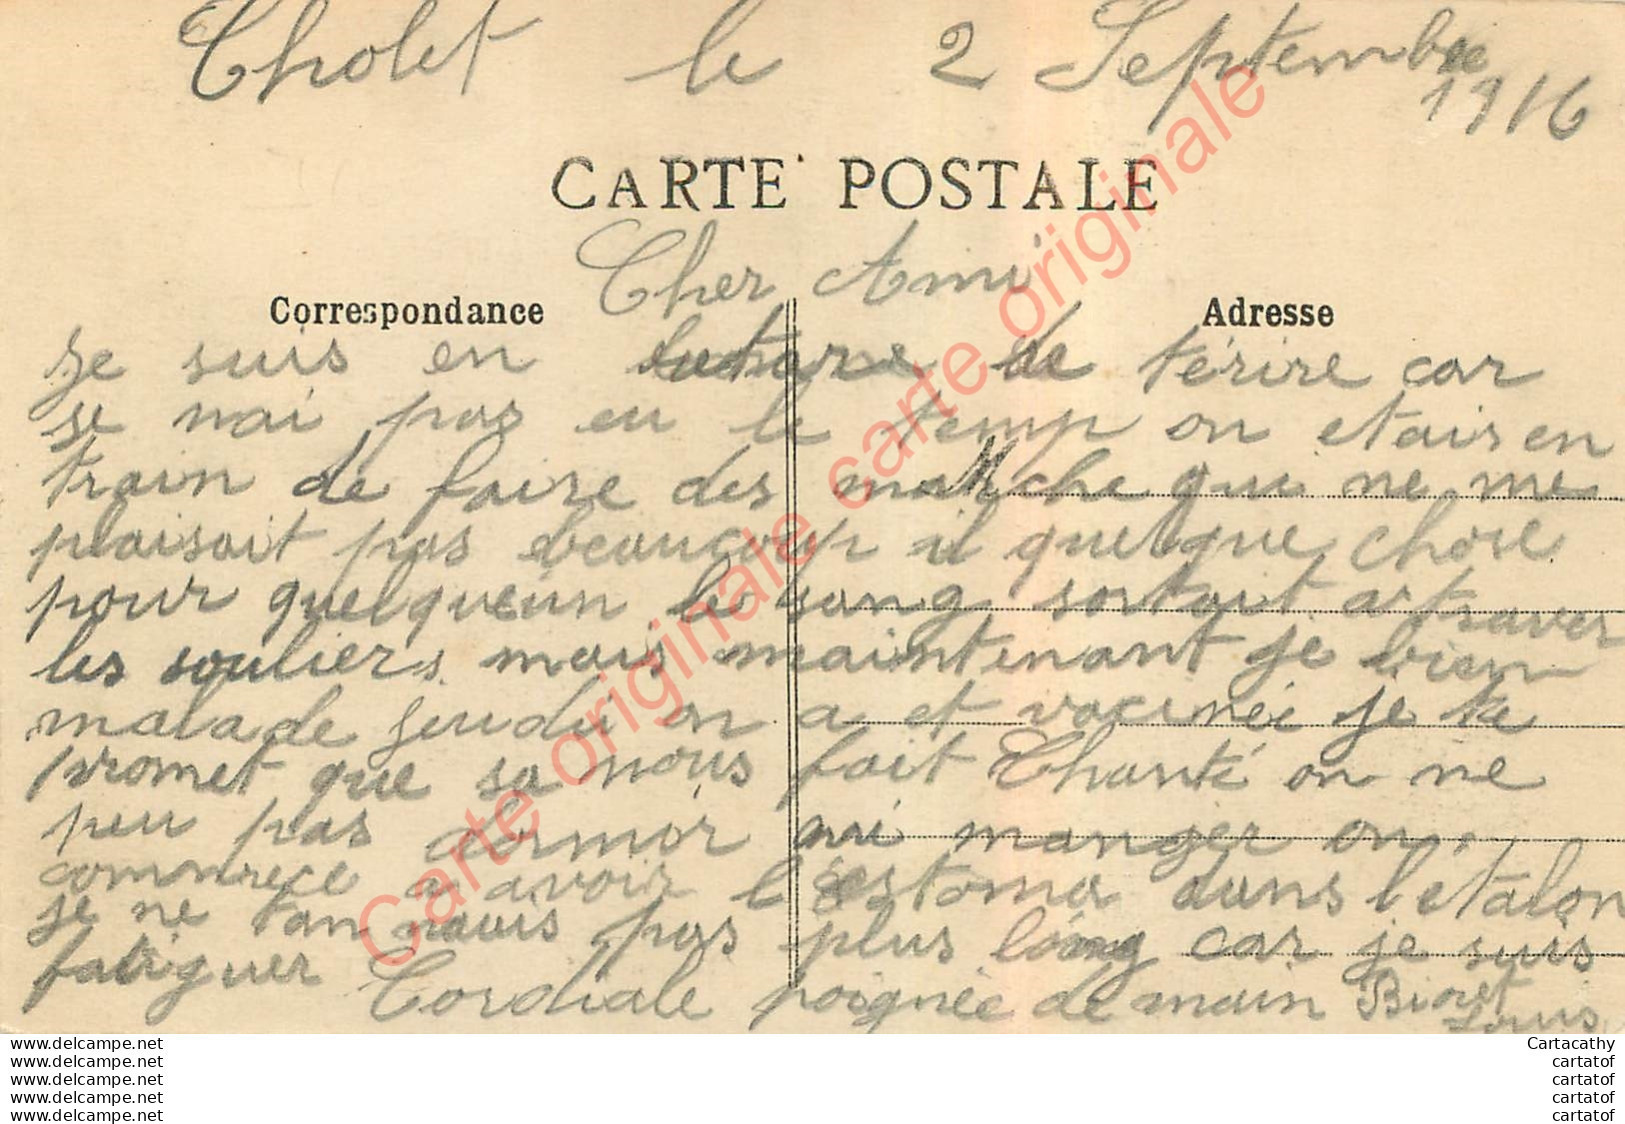 Cholet le 2 Septembre
1916
CARTE POSTALE
Cher Ami
Correspondance
Adresse
Je suis en de térire car
je nai pas eu le temp on etais en
train de faire des marche qui ne me
plaisait pas beaucoup il quelque chose
pour quelqueun le sang sortait atraver
les souliers mais maintenant je bien
malade jeudi on a et vacinée je te
promet que sa nous fait Chanté on ne
peu pas dormir ni manger on
commrece a avoir l'estomac dans letalon
je ne tan pas plus long car je suis
fatiguer Cordiale poignée de main
Louis
Carte originale carte originale carte originale
www.delcampe.net
www.delcampe.net
www.delcampe.net
www.delcampe.net
www.delcampe.net
Cartacathy
cartatof
cartatof
cartatof
cartatof